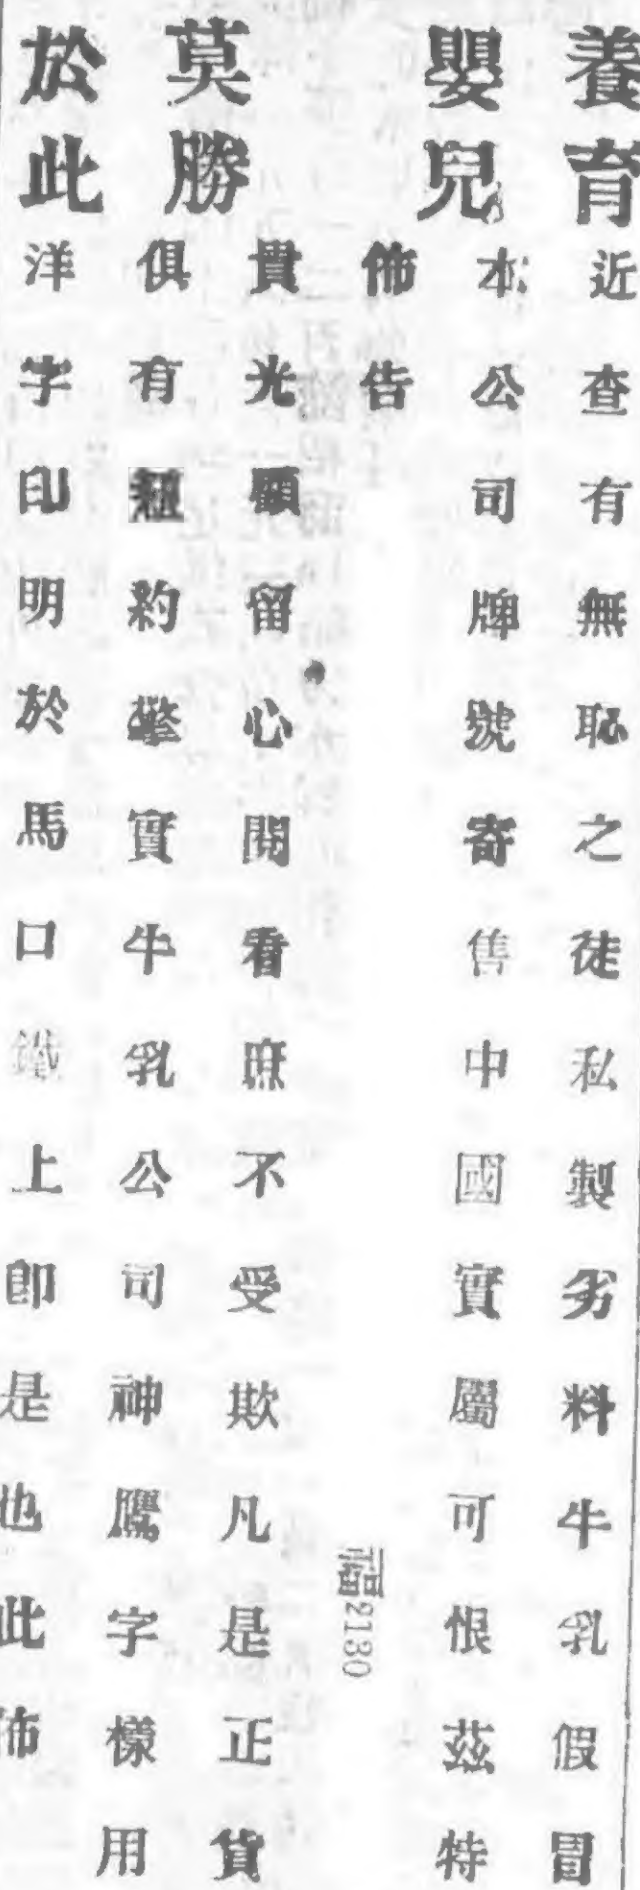 養育
嬰兒
莫勝
於此
近查有無恥之徒私製劣料牛乳假冒
本公司牌號寄售中國實屬可恨茲特
佈告
貴光顧留心閱看庶不受欺凡是正貨
俱有紐約擎實牛乳公司神鷹字樣用
洋字印明於馬口鐵上即是也此佈
福2130